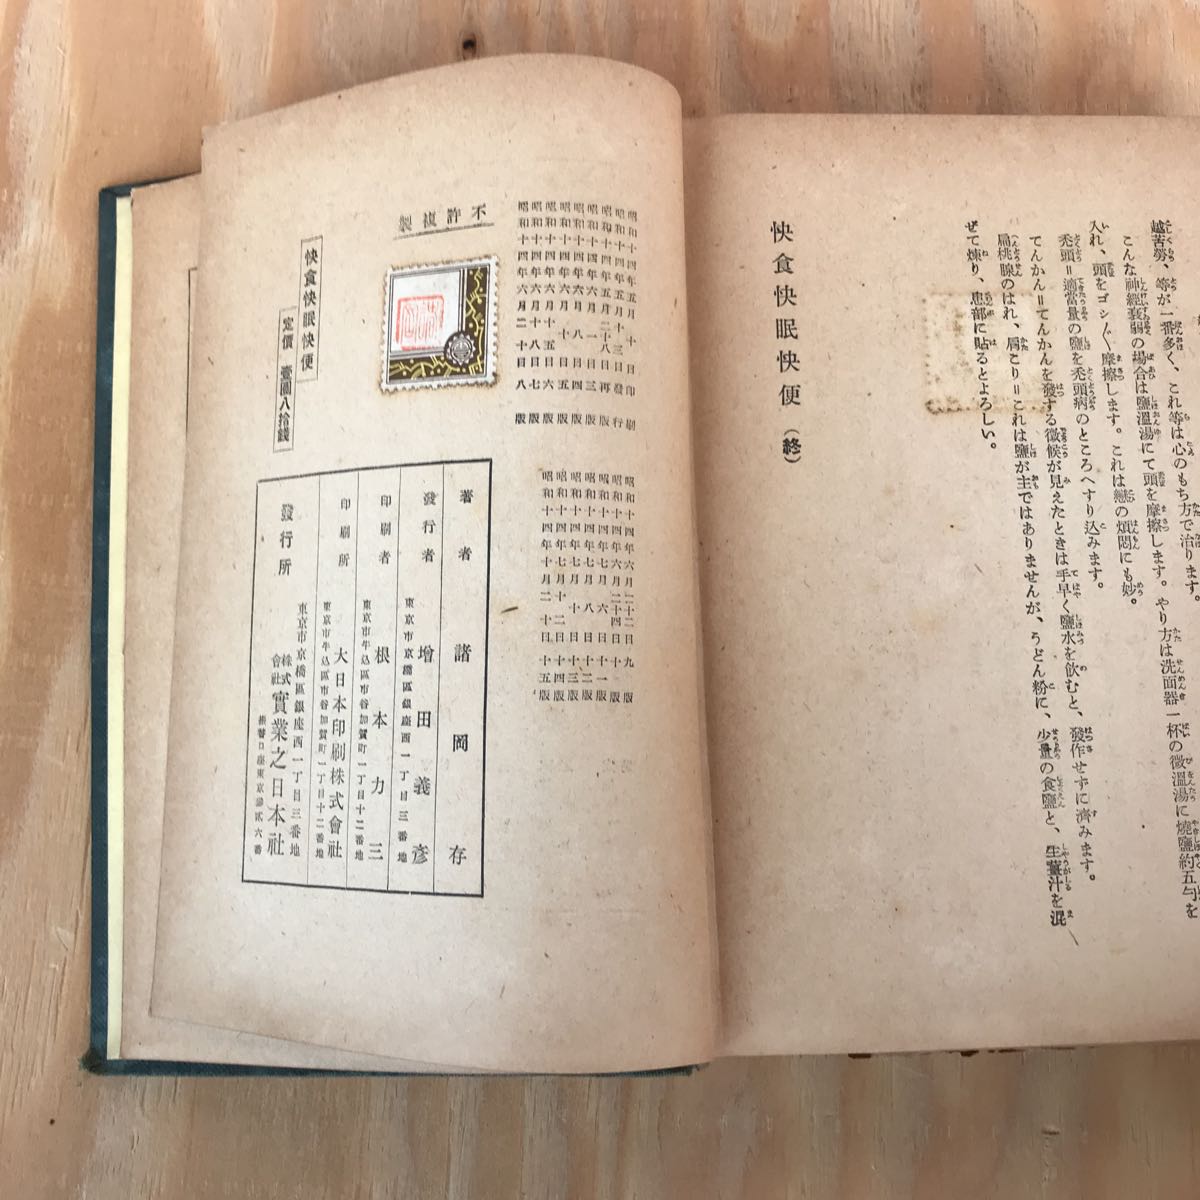 越苦勞、等が一番多く、これ等は心のもち方で治ります。
こんな神經衰弱の場合は鹽溫湯にて頭を摩擦します。やり方は洗面器一杯の微溫湯に燒鹽約五勺を
入れ、頭をゴシ〱摩擦します。これは戀の煩悶にも妙。
禿頭＝適當量の鹽を禿頭病のところへすり込みます。
てんかん＝てんかんを發する徵候が見えたときは手早く鹽水を飮むと、發作せずに濟みます。
扁桃腺のはれ、肩こり＝これは鹽が主ではありませんが、うどん粉に、少量の食鹽と、生薑汁を混
ぜて煉り、患部に貼るとよろしい。
快食快眠快便（終）
昭和十四年五月十日印刷
昭和十四年五月十三日發行
昭和十四年五月二十八日再版
昭和十四年六月一日三版
昭和十四年六月八日四版
昭和十四年六月十日五版
昭和十四年六月十五日六版
昭和十四年六月十八日七版
昭和十四年六月二十日八版
昭和十四年六月二十二日九版
昭和十四年六月二十四日十版
昭和十四年七月六日十一版
昭和十四年七月八日十二版
昭和十四年七月十日十三版
昭和十四年七月十二日十四版
昭和十四年十月二十日十五版
不許複製
快食快眠快便
定價 壹圓八拾錢
著者 諸岡存
東京市京橋區銀座西一丁目三番地
發行者 增田義彥
東京市牛込區市谷加賀町一丁目十二番地
印刷者 根本力三
東京市牛込區市谷加賀町一丁目十二番地
印刷所 大日本印刷株式會社
東京市京橋區銀座西一丁目三番地
發行所 株式會社 實業之日本社
振替口座東京參貳六番